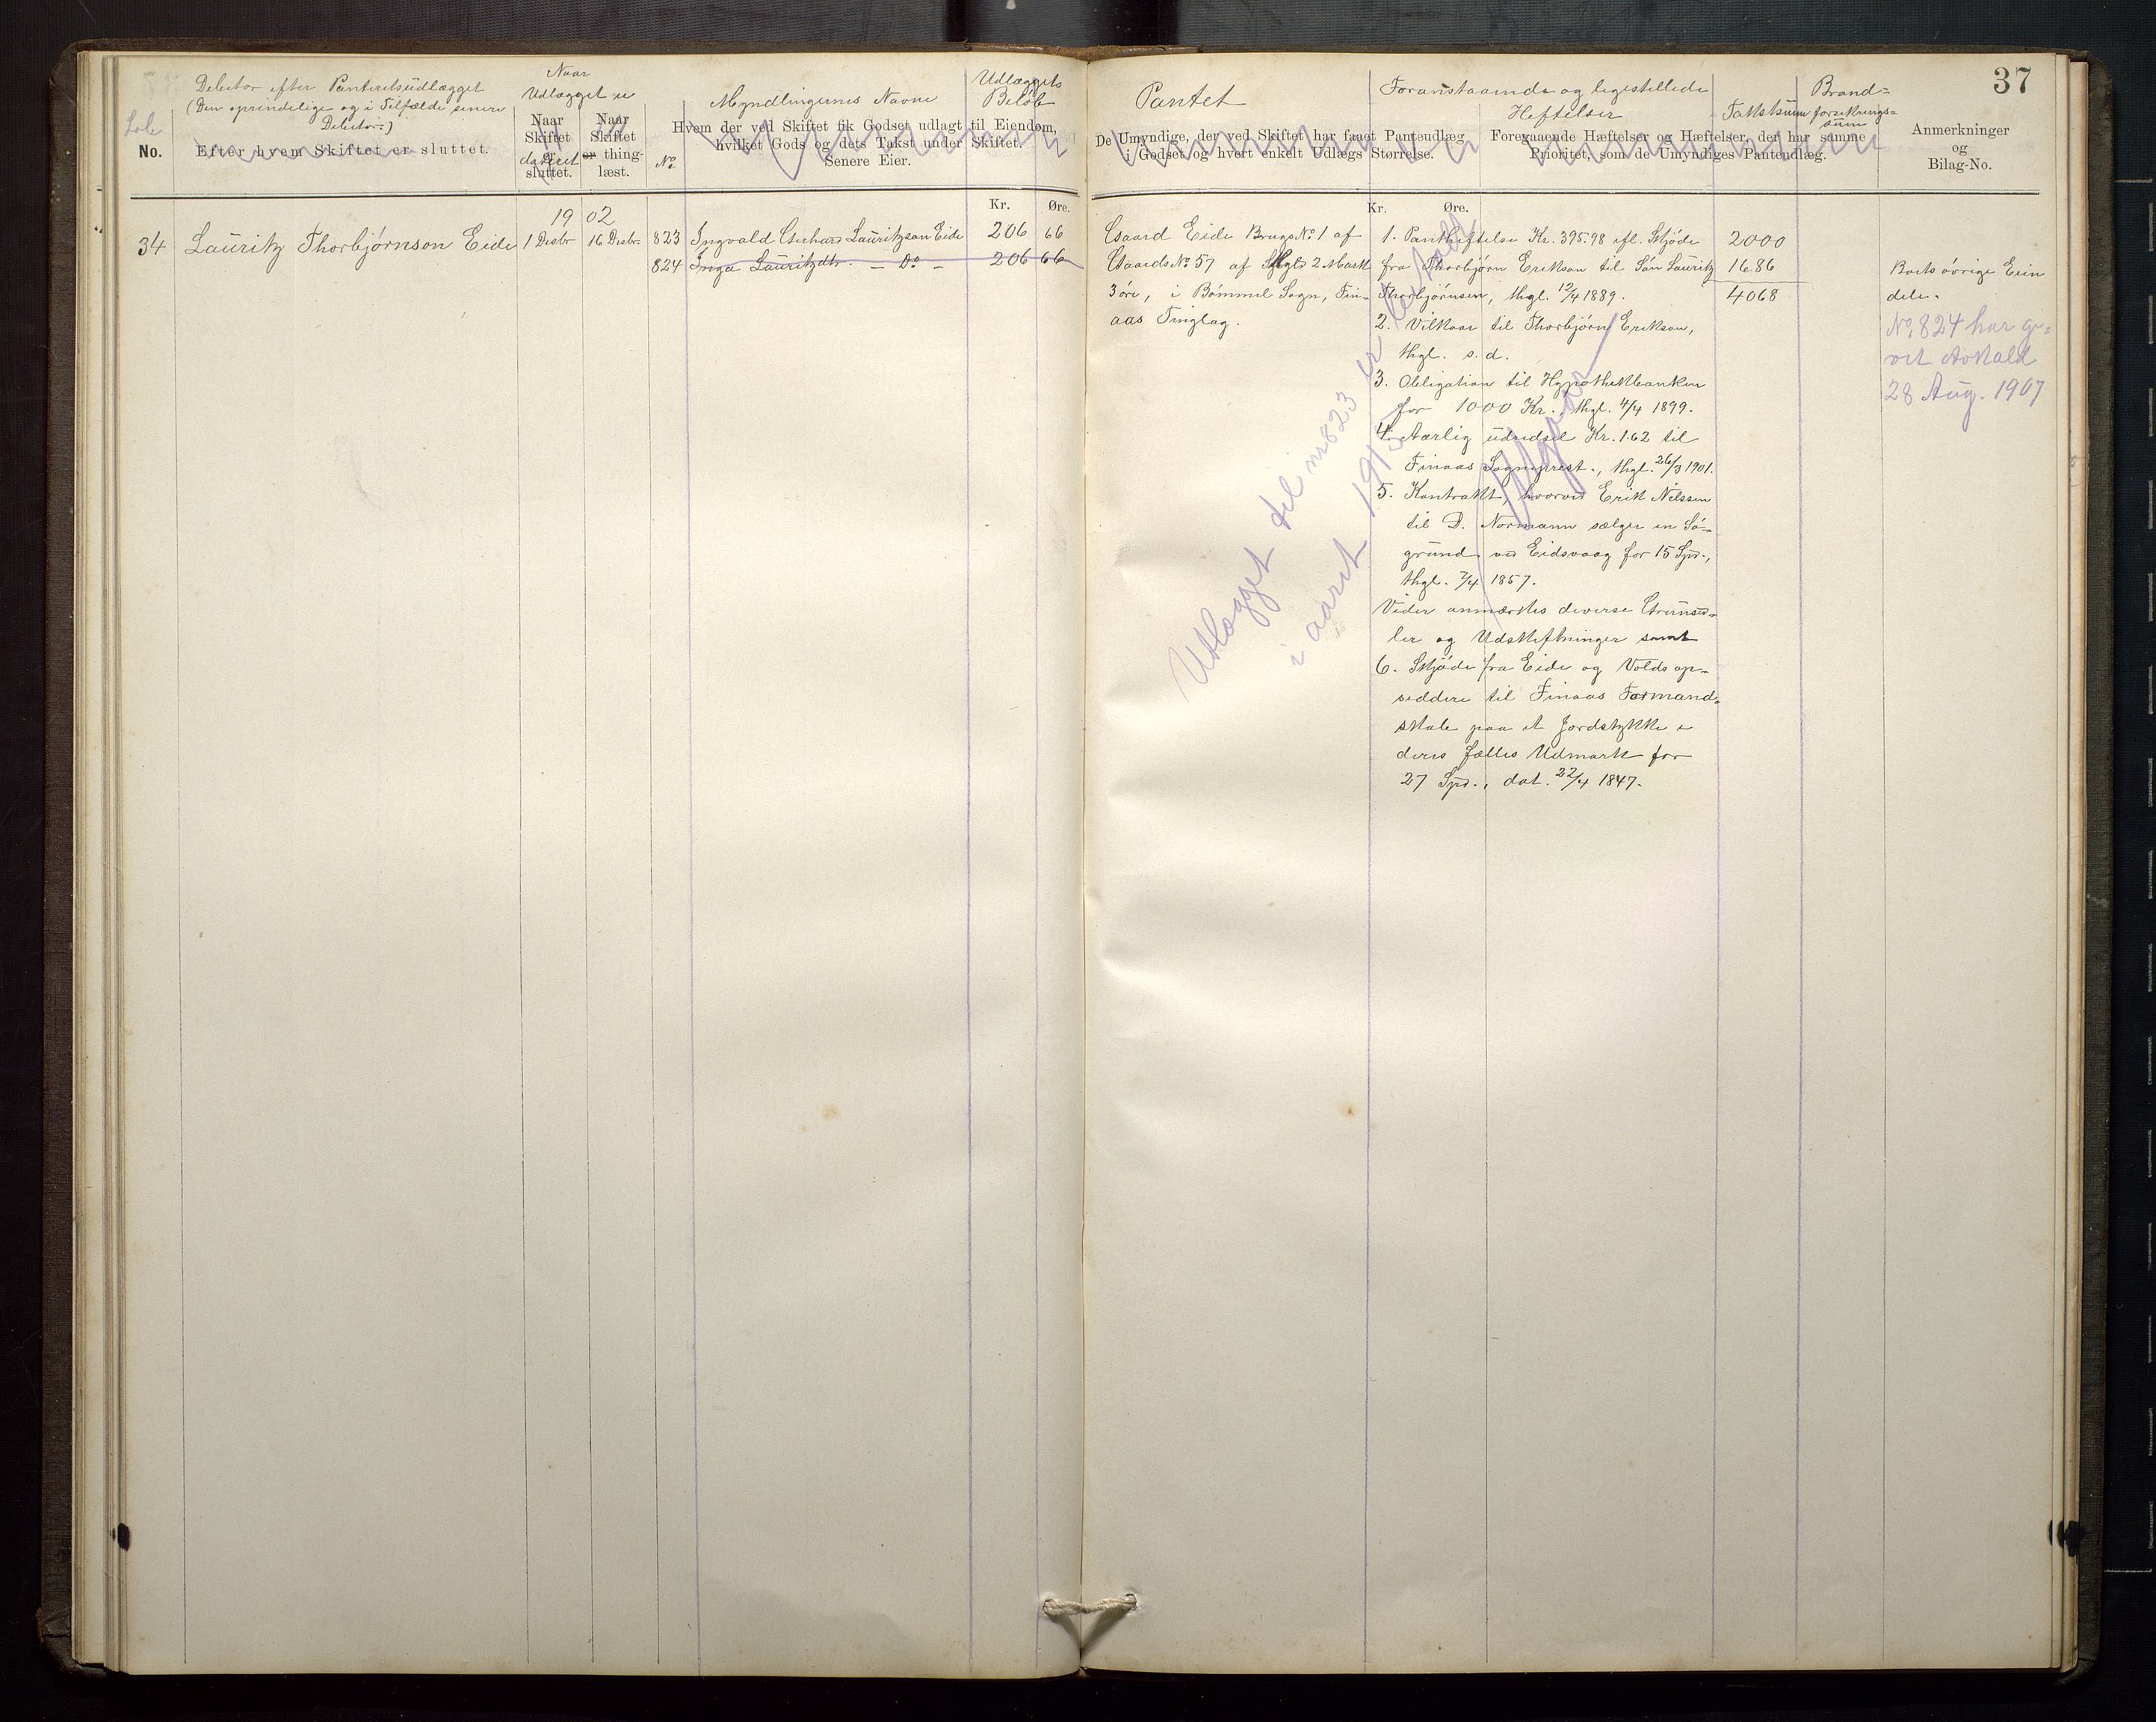 37
Debitor efter Panteretsudlægget
(Den oprindelige og i Tilfælde senere
Debitor.)
Løbe
No.
Efter hvem Skiftet er sluttet.
Naar
Udlægget er
Naar
Skiftet
er
sluttet.
dateret
Naar
Skiftet
er thing-
læst.
No
Myndlingernes Navne
Hvem der ved Skiftet fik Godset udlagt til Eiendom,
hvilket Gods og dets Takst under Skiftet.
Senere Eier.
Udlæggets
Beløb
Pantet
De Umyndige, der ved Skiftet har faaet Panteudlæg
i Godset og hvert enkelt Udlægs Størrelse.
Foranstaaende og ligestillede
Heftelser
Foregaaende Hæftelser og Hæftelser, der har samme
Prioritet, som de Umyndiges Panteudlæg.
Takstsum
Brand-
forsikrings-
sum
Anmerkninger
og
Bilag-No.
Kr. Øre.
Kr. Øre.
1902
34 Lauritz Thorbjørnson Eide 1 Desbr 16 Desbr. 823 Ingvald Gerhard Lauritzson Eide 206 66
824 Inga Lauritzdtr. — Do — 206 66
Gaard Eide Brugs No 1 af
Gaards No 57 af Skyld 2 Mark
3 øre, i Bømmel Sogn, Fin-
aas Tinglag.
1. Pantheftelse Kr. 395.98 ifl. Skjøde
fra Thorbjørn Erikson til Søn Lauritz
Thorbjørnsen, thgl. 12/4 1889.
2. Vilkaar til Thorbjørn Erikson,
thgl. s. d.
3. Obligation til Hypothekbanken
for 1000 Kr., thgl. 4/4 1899.
4. Aarlig udredsel Kr. 1.62 til
Finaas Sogneprest., thgl. 26/3 1901.
5. Kontrakt, hvorved Erik Nilssen
til D. Normann sælger en Sø-
grund ved Eidsvaag for 15 Spd.,
thgl. 7/4 1857.
Videre anmærkes diverse Grunsed-
ler og Udskiftninger samt
6. Skjøde fra Eide og Volds op-
siddere til Finaas Formand-
skab paa et Jordstykke i
deres fælles Udmark for
27 Spd., dat. 22/4 1847.
2000
1686
4068
Boets øvrige Eien
dele.
No. 824 har gi-
vet Avkald
28 Aug. 1907
Utlægget til nr 823 er betalt
i aaret 1915
Utgaar